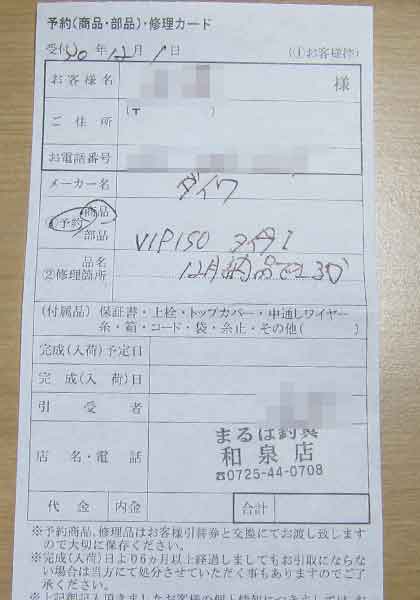 予約(商品・部品)・修理カード
受付20年12月1日 (①お客様控)
お客様名 様
ご住所 (〒 )
お電話番号
メーカー名 ダイワ
①予約 商品
部品 VIP ISO
品名
②修理箇所 12月納品
(付属品) 保証書・上栓・トップカバー・中通しワイヤー
糸・箱・コード・袋・糸止・その他( )
完成(入荷)予定日
完成(入荷)日
引受者
店名・電話 まるは釣具
和泉店
☎0725-44-0708
代金 内金 合計
※予約商品、修理品はお客様引替券と交換にてお渡し致します
ので大切に保存ください。
※完成(入荷)日より6カ月以上経過しましてもお引取にならな
い場合は当方にて処分させていただく事もありますのでご了
承ください。
※上記御記入頂きましたお客様の個人情報につきましては、お